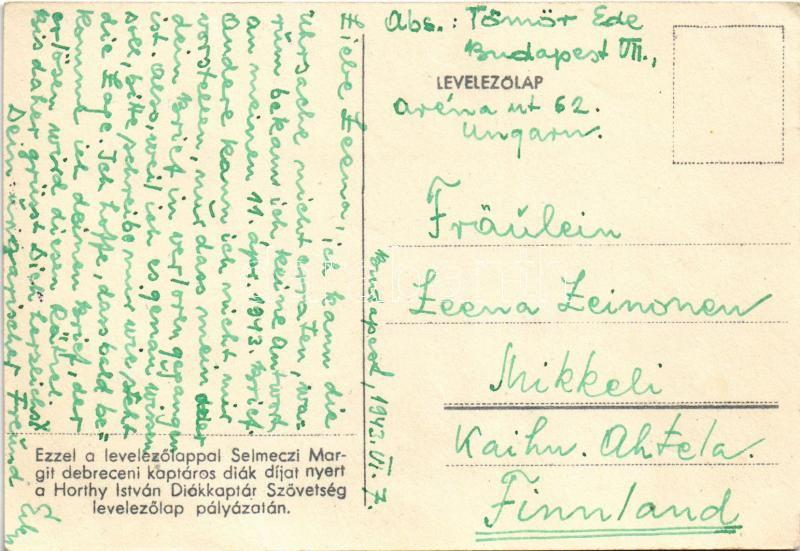 Abs.: Tömör Ede
Budapest VII.,
LEVELEZŐLAP
Aréna ut 62.
Ungarn.
Fräulein
Leena Leinonen
Mikkeli
Kaihn. Ahtela.
Finnland
Budapest, 1943. VI. 7.
Liebe Leena, ich kann die
Uhrsache nicht erraten, wa-
rum bekam ich keine Antwort
an meinen 11. ápr. 1943. Brief.
Andere kann ich nicht mir
vorstellen, nur dass mein oder
dein Brief in verloren gegangen
ist. Also, weil ich es genau wissen
soll, bitte, schreibe mir wie steht
die Lage. Ich hoffe, dass bald be-
kommt ich deinen Brief, der
erlösen wird diesen Rätsel.
Bis daher grüsst Dich herzlichst
Dein ungarischer Freund
Ezzel a levelezőlappal Selmeczi Mar-
git debreceni kaptáros diák díjat nyert
a Horthy István Diákkaptár Szövetség
levelezőlap pályázatán.